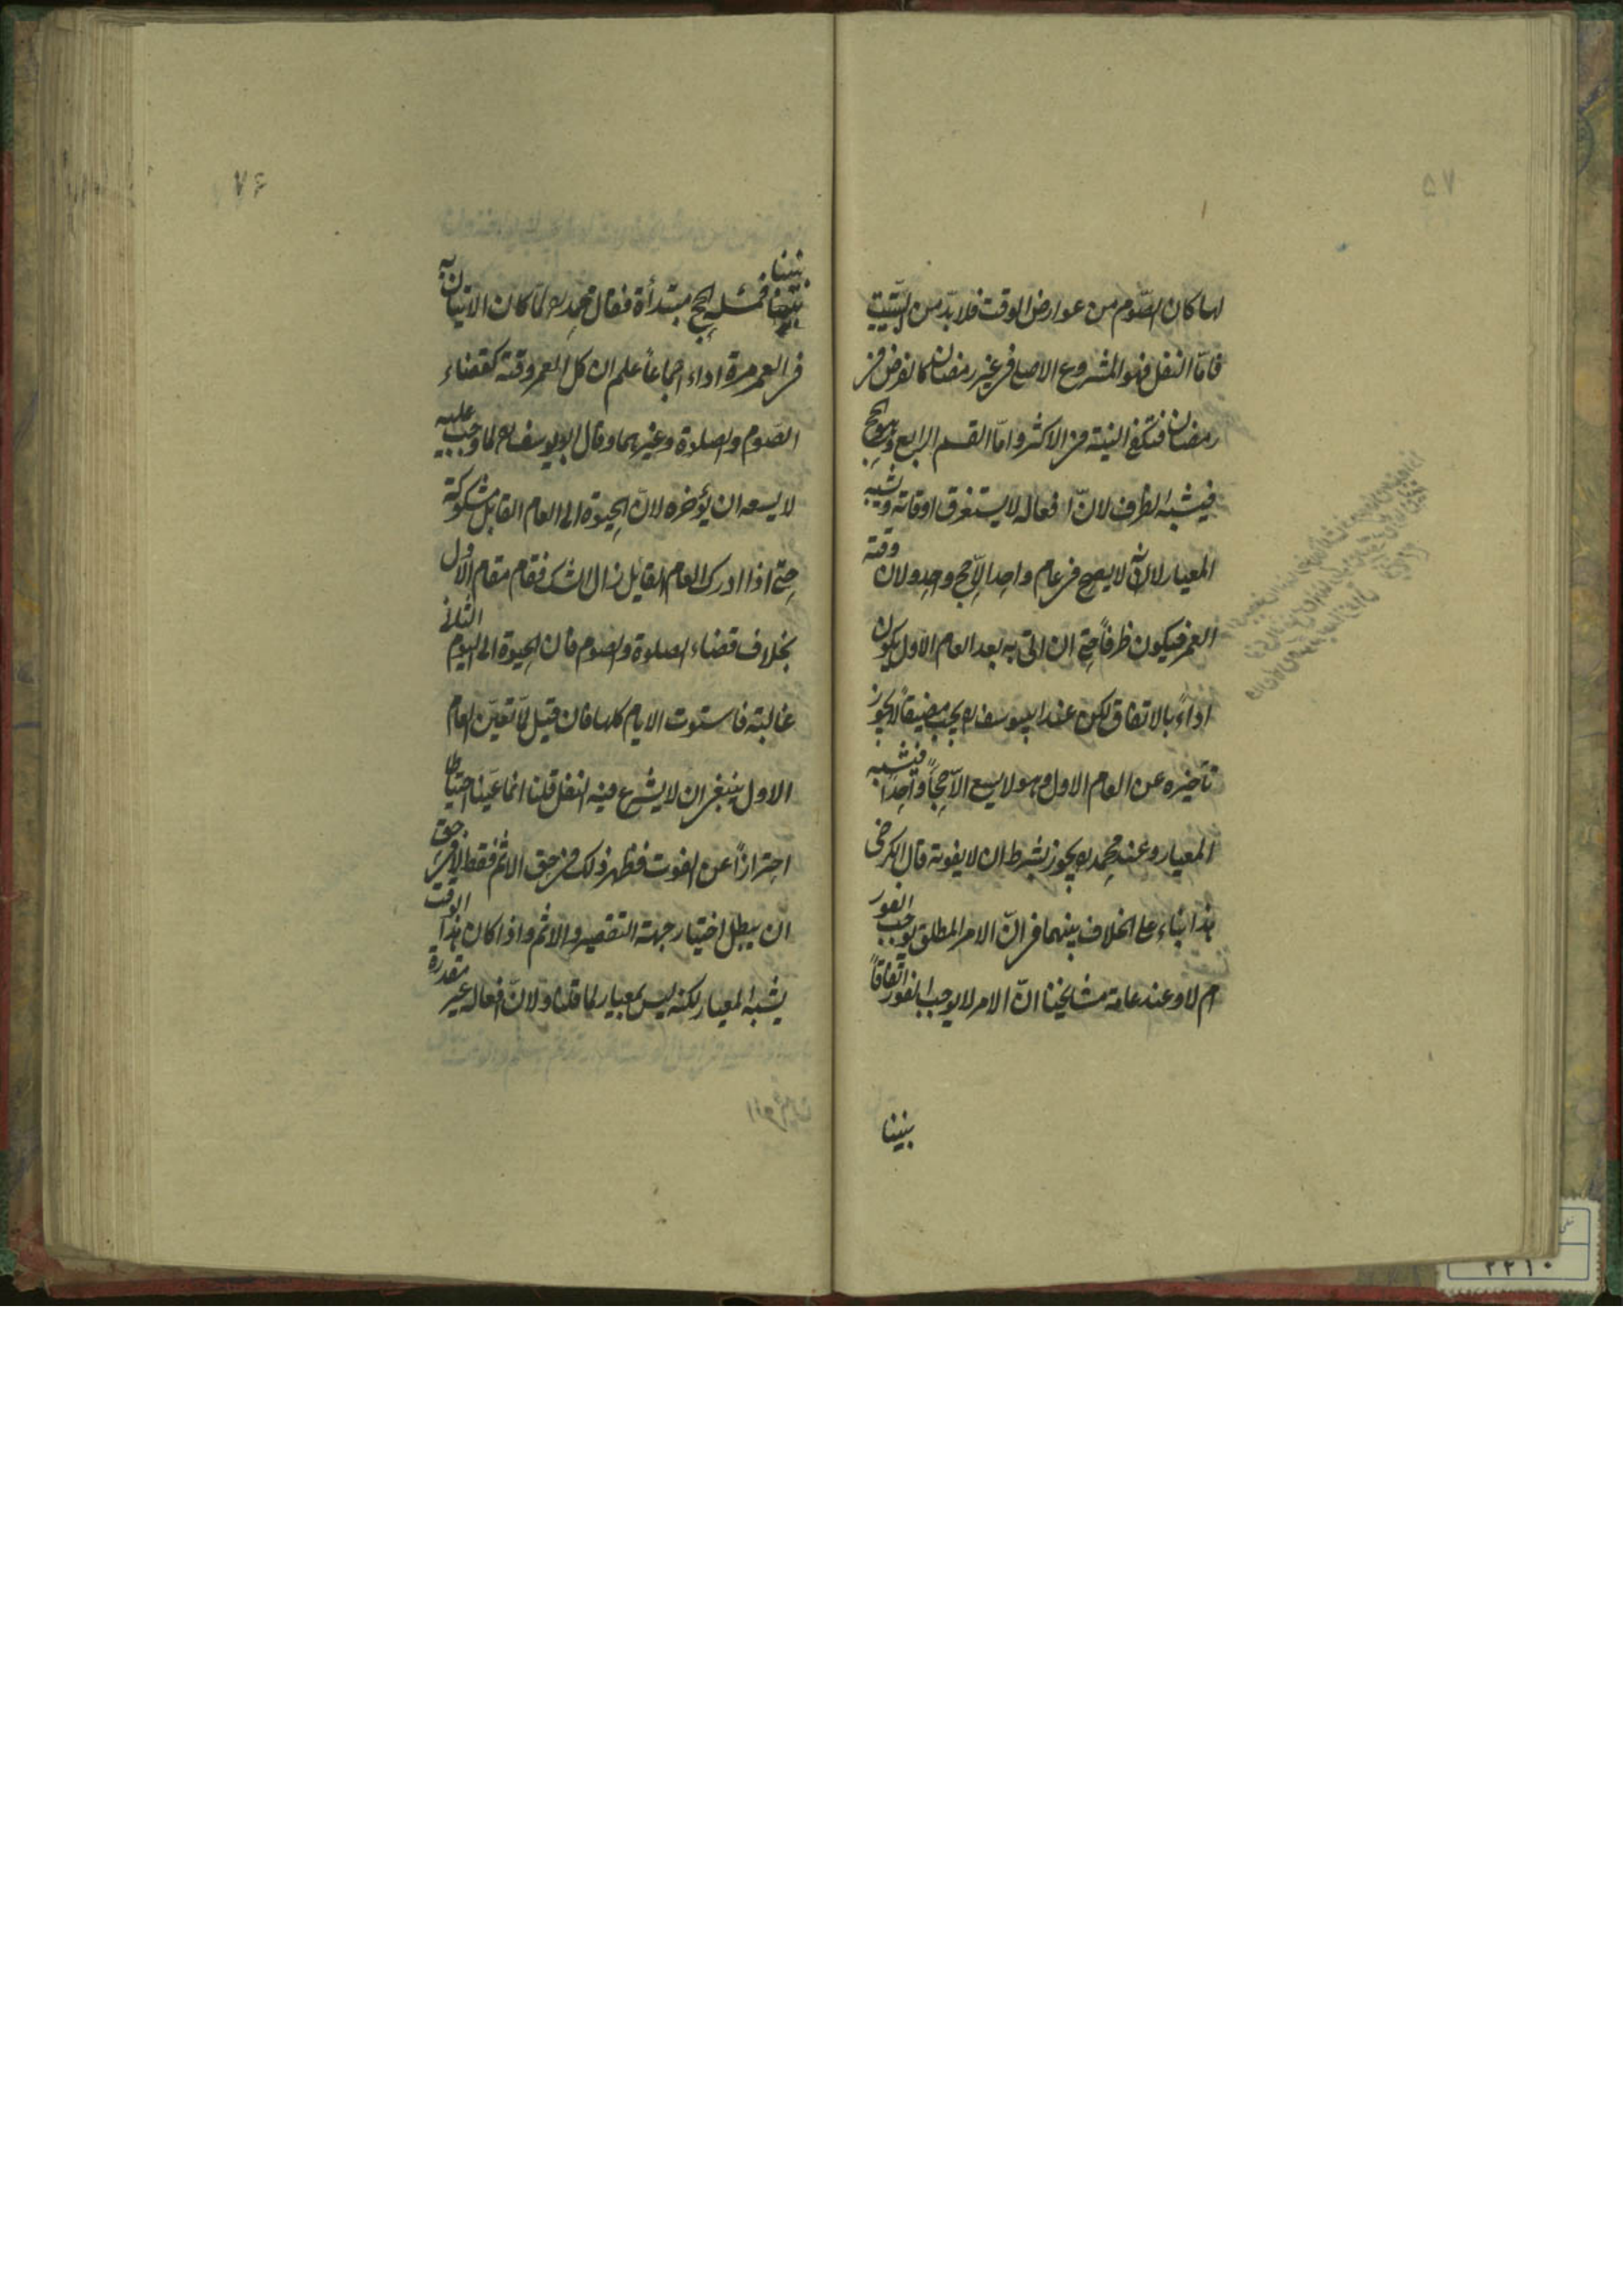 ۵۷
لها كان الصّوم من عوارض الوقت فلا بدّ من التبييت
فامّا النفل فهو المشروع الاصلى فى غير رمضان كالفرض فى
رمضان فتكفى النية فى الاكثر وامّا القسم الرابع وهو الحج
فيشبه الظرف لانّ افعاله لا يستغرق اوقاته ويشبه
المعيار لانّه لا يصح فى عام واحد الّا حج واحد ولان وقته
العمر فيكون ظرفاً حتى ان اتى به بعد العام الاول يكون
اداءً بالاتفاق لكن عند ابى يوسف ره يجب مضيقاً لا يجوز
تأخيره عن العام الاول وهو لا يسع الّا حجاً واحداً فيشبه
المعيار وعند محمد ره يجوز بشرط ان لا يفوته قال الكرخى
هذا بناء على الخلاف بينهما فى انّ الامر المطلق يوجب الفور
ام لا وعند عامة مشايخنا انّ الامر لا يوجب الفور اتفاقاً
بينا
۷۶
بيننا
بيننا فمسئلة الحج مبتدأة فقال محمد ره لمّا كان الاتيان به
فى العمر مرة اداء اجماعاً علم ان كل العمر وقته كقضاء
الصّوم والصلوة وغيرهما وقال ابو يوسف ره لما وجب عليه
لا يسعه ان يؤخره لانّ الحيوة الى العام القابل مشكوكة
حتى اذا ادرك العام القابل زال الشك فقام مقام الاول
بخلاف قضاء الصلوة والصوم فان الحيوة الى اليوم الثانى
غالبة فاستوت الايام كلها فان قيل لمّا تعيّن العام
الاول ينبغى ان لا يشرع فيه النفل قلنا انما عيّنا احتياطا
احترازاً عن الفوت فظهر ذلك فى حق الاثم فقط لا فى حق
ان يبطل اختيار جهة التقصير والاثم واذا كان هذا الوقت
يشبه المعيار لكنه ليس بمعيار لما قلنا ولانّ افعاله غير مقدرة
۲۲۱۰